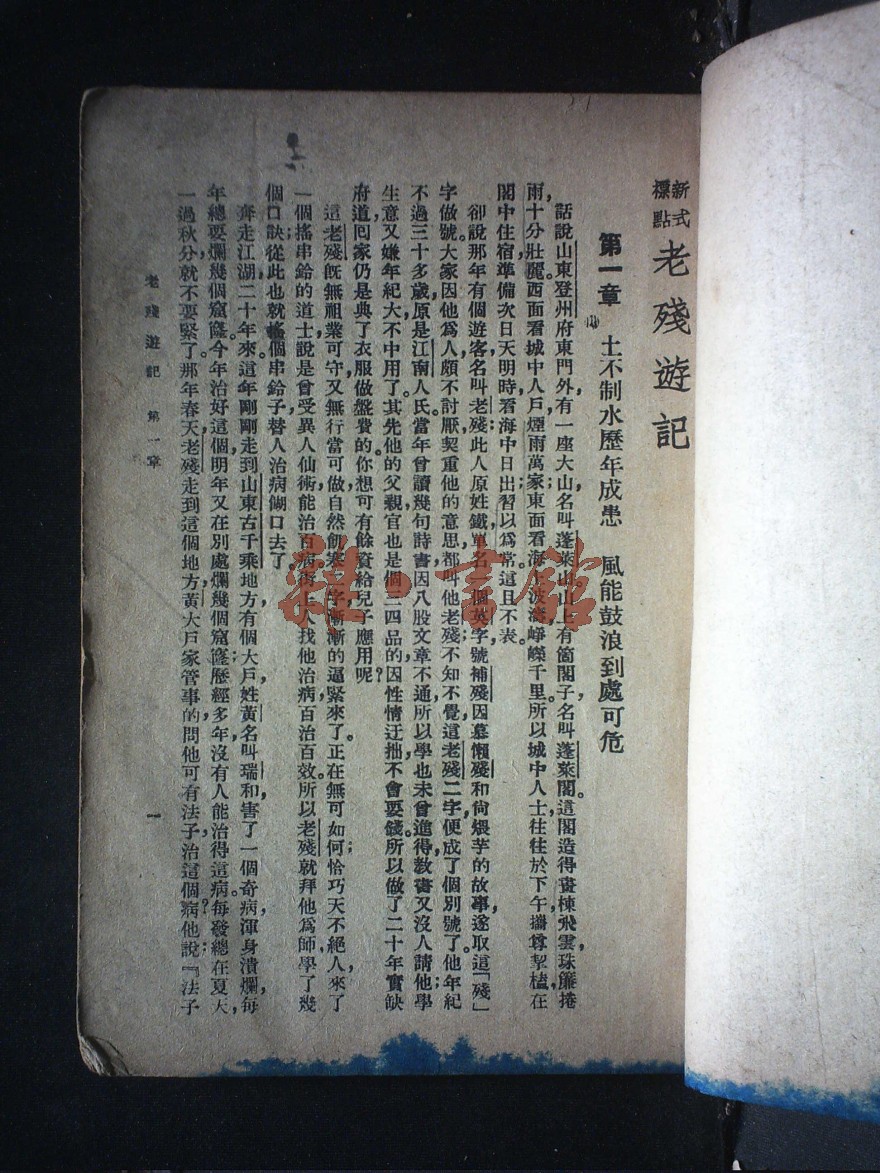 新式標點 老殘遊記
第一章 土不制水歷年成患 風能鼓浪到處可危
話說山東登州府東門外，有一座大山名叫蓬萊山。山上有箇閣子，名叫蓬萊閣。這閣造得畫棟飛雲，珠簾捲
雨，十分壯麗。西面看城中人戶，煙雨萬家；東面看海上波濤，崢嶸千里。所以城中人士往往於下午攜尊挈榼，在
閣中住宿，準備次日天明時看海中日出；習以爲常。這且不表。
卻說那年有個遊客，名叫老殘；此人原姓鐵，單名一個英字，號補殘；因慕懶殘和尙煨芋的故事，遂取這「殘」
字做號。大家因他爲人頗不討厭，契重他的意思，都叫他老殘；不知不覺，這老殘二字便成了個別號了。他年紀
不過三十多歲，原是江南人氏；當年曾讀幾句詩書，因八股文章不通，所以學也未曾進得，敎書又沒人請他，學
生意又嫌年紀大，不中用了。其先他的父親官也是個三四品的，因性情迂拙，不會要錢，所以做了二十年實缺，
府道囘家仍是典了衣服做盤費的。你想可有餘資給兒子應用呢？
這老殘旣無祖業可守，又無行當可做，自然飢寒二字漸漸的逼緊來了。正在無可如何，恰巧天不絕人，來了
一個搖串鈴的道士，說是曾受異人仙術，能治百病，街上人找他治病，百治百效。所以老殘就拜他爲師，學了幾
個口訣，從此也就搖個串鈴子，替人治病餬口去了。
奔走江湖二十年來。這年剛剛走到山東古千乘地方，有個大戶，姓黃，名叫瑞和，害了一個奇病，渾身潰爛，每
年總要爛幾個窟窿。今年治好這個，明年又在別處爛幾個窟窿；歷經多年，沒有人能治得這病，每發總在夏天，
一過秋分就不要緊了。那年春天，老殘走到這個地方，黃大戶家管事的，問他可有法子治這個病？他說：『法子
老殘遊記 第一章 一
雜·書館